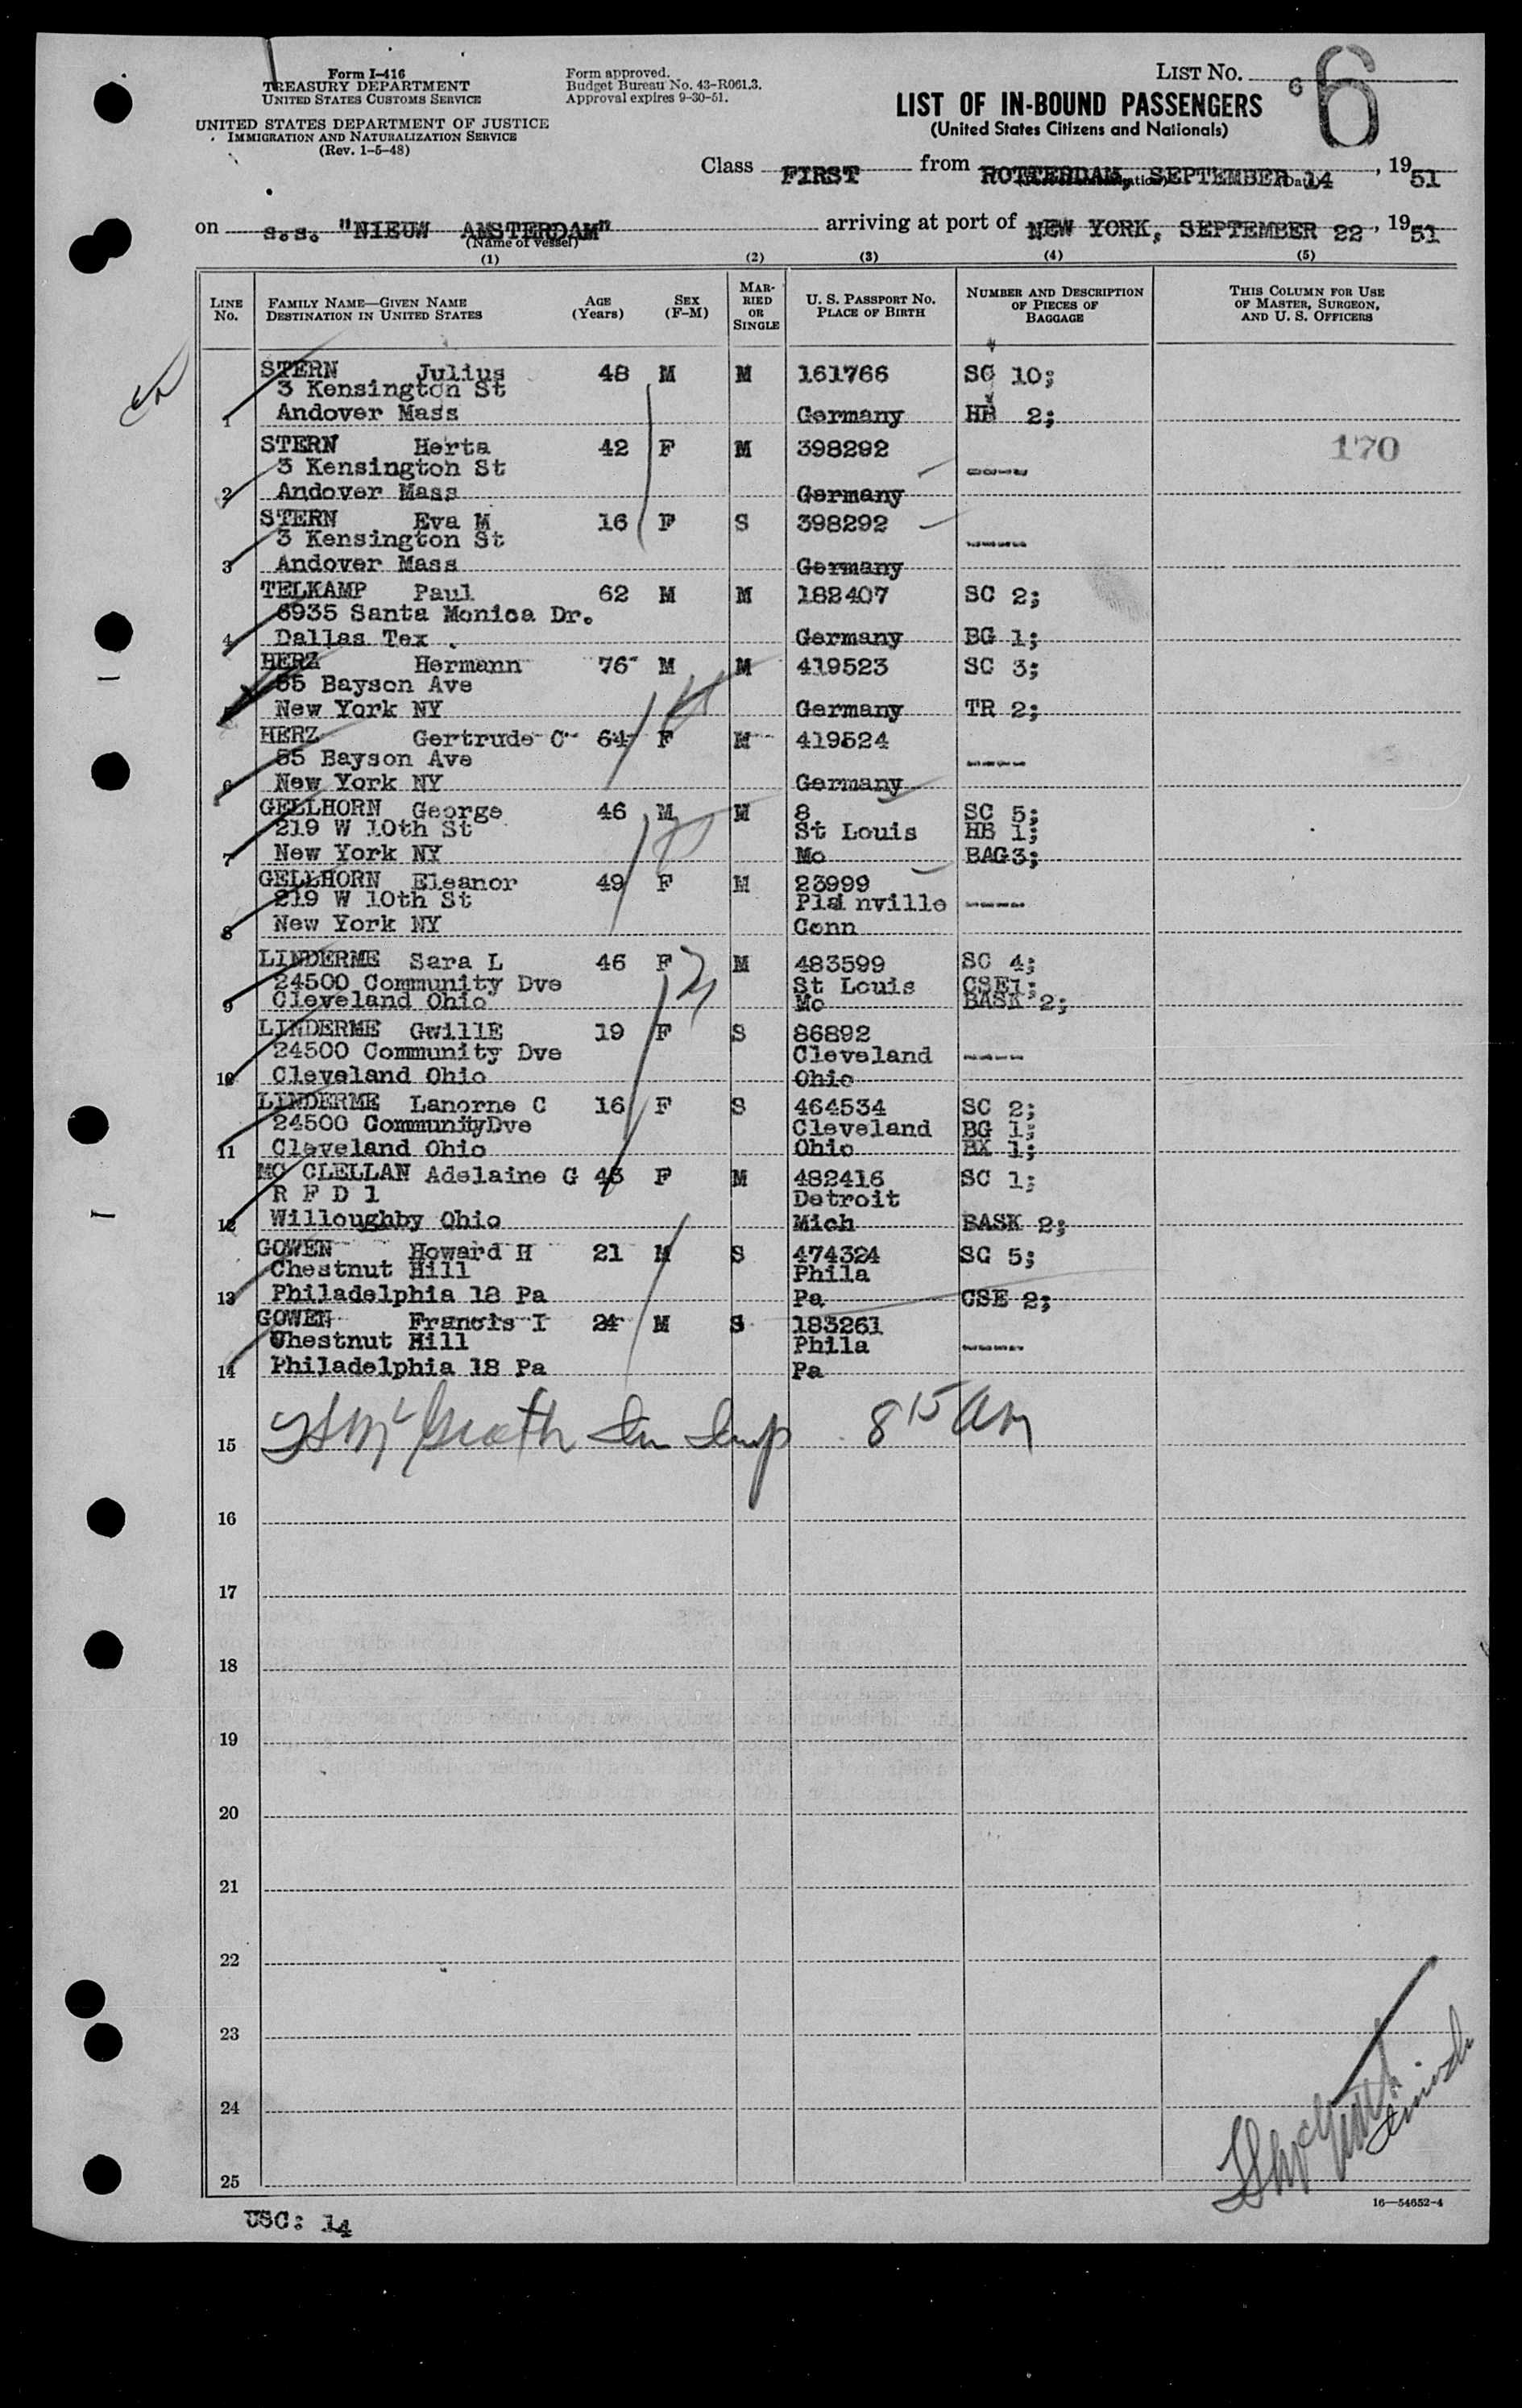 Form I-416
TREASURY DEPARTMENT
UNITED STATES CUSTOMS SERVICE
UNITED STATES DEPARTMENT OF JUSTICE
IMMIGRATION AND NATURALIZATION SERVICE
(Rev. 1-5-48)
Form approved.
Budget Bureau No. 43-R061.3.
Approval expires 9-30-51.
LIST NO. 6 6
LIST OF IN-BOUND PASSENGERS
(United States Citizens and Nationals)
Class FIRST from ROTTERDAM, SEPTEMBER 14, 1951
on s.s. "NIEUW AMSTERDAM" arriving at port of NEW YORK, SEPTEMBER 22, 1951
(Name of vessel)
(1) (2) (3) (4) (5)
LINE NO.
FAMILY NAME—GIVEN NAME
DESTINATION IN UNITED STATES
AGE (Years)
SEX (F-M)
MARRIED OR SINGLE
U. S. PASSPORT NO.
PLACE OF BIRTH
NUMBER AND DESCRIPTION OF PIECES OF BAGGAGE
THIS COLUMN FOR USE OF MASTER, SURGEON, AND U. S. OFFICERS
STERN Julius 48 M M 161766 SC 10;
3 Kensington St
1 Andover Mass Germany HB 2;
STERN Herta 42 F M 398292 170
3 Kensington St ----
2 Andover Mass Germany
STERN Eva M 16 F S 398292
3 Kensington St ----
3 Andover Mass Germany
TELKAMP Paul 62 M M 182407 SC 2;
6935 Santa Monica Dr.
4 Dallas Tex . Germany BG 1;
HERZ Hermann 76 M M 419523 SC 3;
55 Bayson Ave
5 New York NY Germany TR 2;
HERZ Gertrude C 64 F M 419524
55 Bayson Ave ----
6 New York NY Germany
GELLHORN George 46 M M 8 SC 5;
219 W 10th St St Louis HB 1;
7 New York NY Mo BAG3;
GELLHORN Eleanor 49 F M 23999
219 W 10th St Plai nville ----
8 New York NY Conn
LINDERME Sara L 46 F M 483599 SC 4;
24500 Community Dve St Louis CSE1;
9 Cleveland Ohio Mo BASK 2;
LINDERME GwillE 19 F S 86892
24500 Community Dve Cleveland ----
10 Cleveland Ohio Ohio
LINDERME Lanorne C 16 F S 464534 SC 2;
24500 CommunityDve Cleveland BG 1;
11 Cleveland Ohio Ohio BX 1;
MC CLELLAN Adelaine G 46 F M 482416 SC 1;
R F D 1 Detroit
12 Willoughby Ohio Mich BASK 2;
GOWEN Howard H 21 M S 474324 SC 5;
Chestnut Hill Phila
13 Philadelphia 18 Pa Pa CSE 2;
GOWEN Francis I 24 M S 183261
Chestnut Hill Phila ----
14 Philadelphia 18 Pa Pa
15 McGrath Imm Insp 8 15 AM
16
17
18
19
20
21
22
23
24
25
16—54652-4
USC: 14